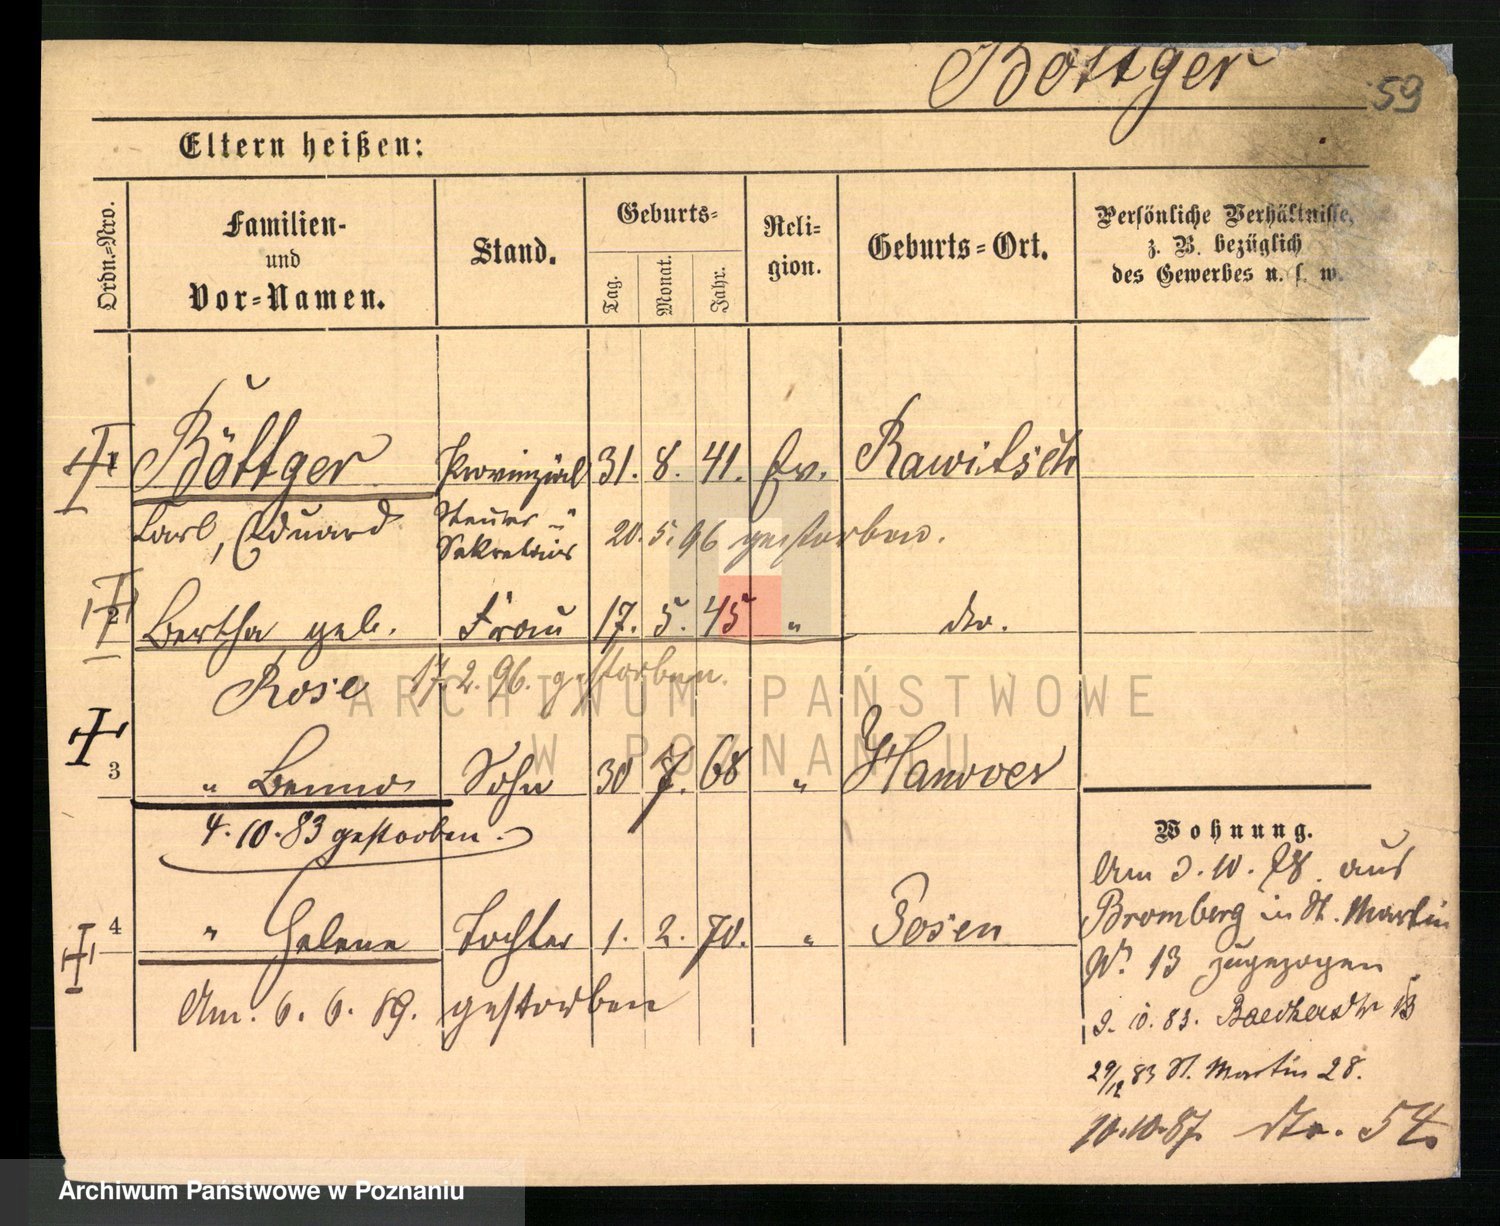 Böttger
59
Eltern heißen:
Ordn.=Nro.
Familien-
und
Vor=Namen.
Stand.
Geburts=
Tag.
Monat.
Jahr.
Reli=
gion.
Geburts=Ort.
Persönliche Verhältnisse,
z. B. bezüglich
des Gewerbes u. s. w.
1 Böttger Provinzial 31. 8. 41. Ev. Rawitsch
Carl, Eduard Steuer=
Sekretair 20. 5. 96 gestorben.
2 Bertha geb. Frau 17. 5. 45 " dto.
Rose 17. 2. 96. gestorben.
3 " Benno Sohn 30 7. 68 " Hanover
4. 10. 83 gestorben.
4 " Helene Tochter 1. 2. 70. " Posen
Am. 6. 6. 89. gestorben
Wohnung.
Am 3. 10. 78. aus
Bromberg in St. Martin
No. 13 zugezogen
9. 10. 83.
29/12 83 St. Martin 28.
10.10.87. dto. 54.
ARCHIWUM PAŃSTWOWE
W POZNANIU
Archiwum Państwowe w Poznaniu